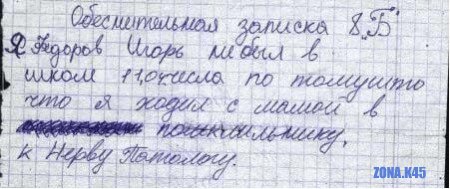 Обеснительная записка 8,,Б"
Я Федоров Игорь небыл в
школ 11,ого числа по томушто
что я ходил с мамой в
к Нерву Патологу.
ZONA.K45